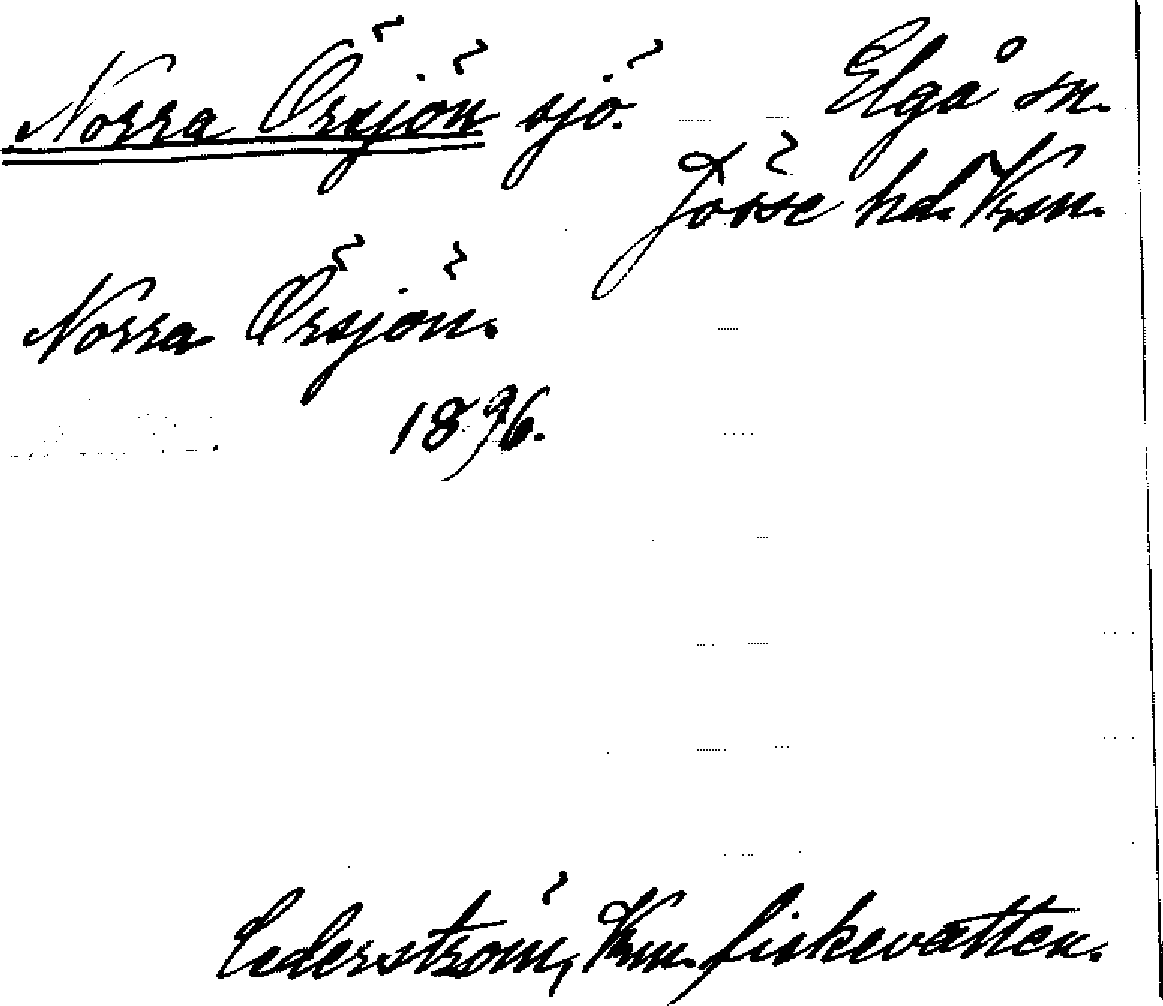 Norra Örsjön sjö. Elgå sn.
Jösse hd. Vrm.
Norra Örsjön.
1896.
Cederström, Vrm. fiskevatten.